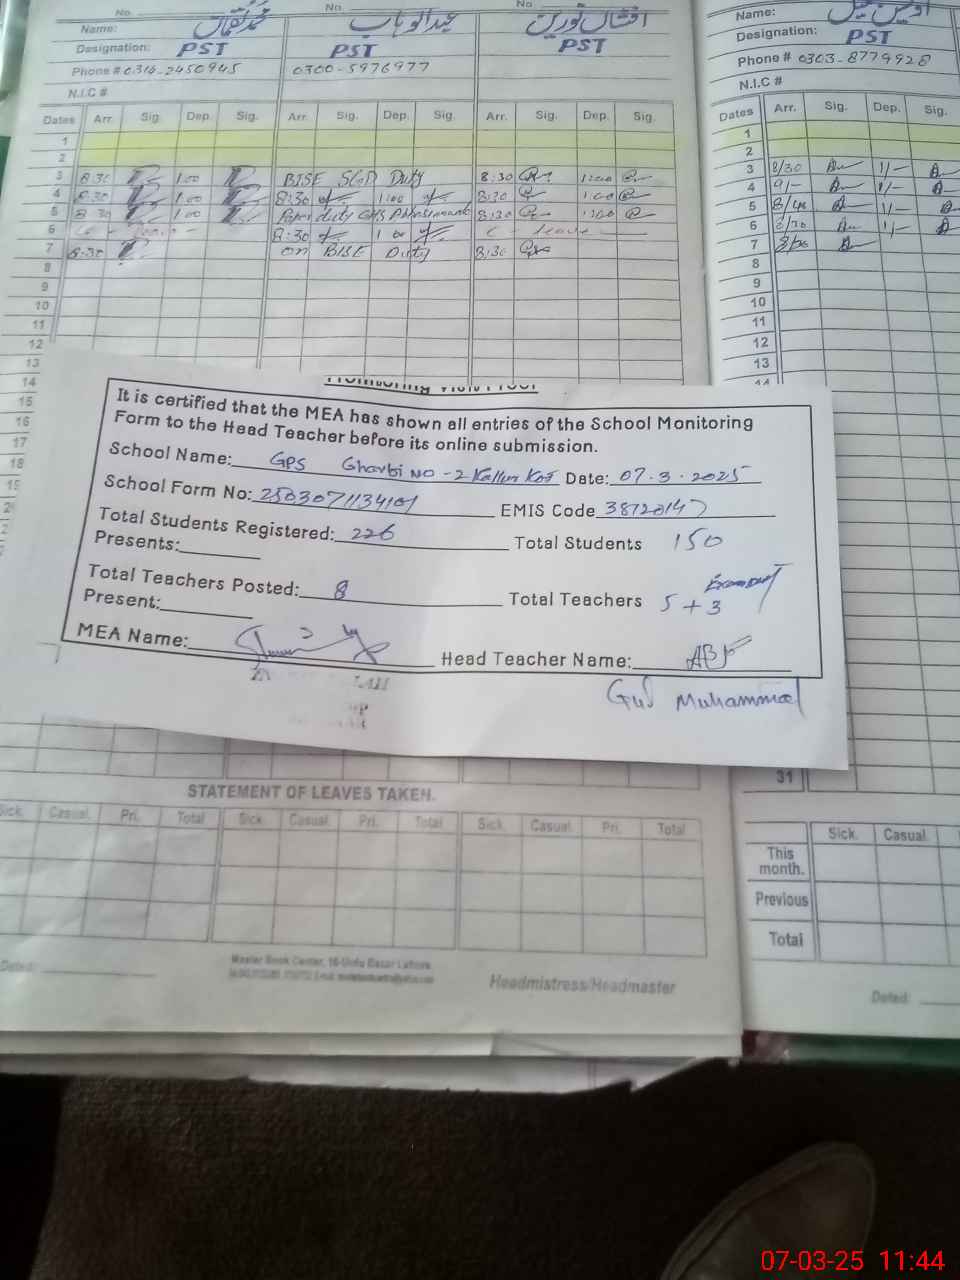 No. No. No.
Name: محمد نعمان عبدالوہاب افشاں نورین
Designation: PST PST PST
Phone # 0316-2450945 0300-5976977
N.I.C #
Dates Arr. Sig. Dep. Sig. Arr. Sig. Dep. Sig. Arr. Sig. Dep. Sig.
1
2
3 8:30 1:00 BISE SGD Duty 8:30 1:00
4 8:30 1:00 8:30 1:00 8:30 1:00
5 8:30 1:00 Paper duty GHS 8:30 1:00
6 8:30 1:00 C - leave
7 8:30 on BISE Duty 8:30
8
9
10
11
12
13
14
15
16
17
18
Name:
Designation: PST
Phone # 0303-8779928
N.I.C #
Dates Arr. Sig. Dep. Sig.
1
2
3 8/30 1/-
4 9/- 1/-
5 1/-
6 8/30 1/-
7
8
9
10
11
12
13
14
Monitoring Visit Proof
It is certified that the MEA has shown all entries of the School Monitoring
Form to the Head Teacher before its online submission.
School Name: GPS Gharbi NO-2 Kallur Kot Date: 07.3.2025
School Form No: 2503071134101 EMIS Code 38720147
Total Students Registered: 226 Total Students 150
Presents:
Total Teachers Posted: 8 Total Teachers 5 + 3
Present:
MEA Name: Head Teacher Name:
Gul Muhammad
31
STATEMENT OF LEAVES TAKEN.
Sick. Casual. Pri. Total Sick. Casual. Pri. Total Sick. Casual. Pri. Total
Sick. Casual.
This
month.
Previous
Total
Master Book Center, 16-Urdu Bazar Lahore
Dated: Headmistress/Headmaster
Dated:
07-03-25 11:44